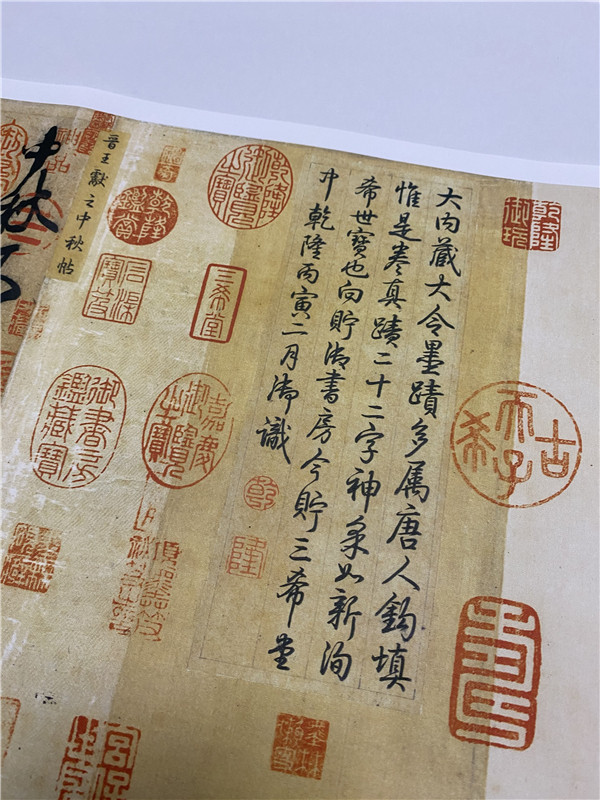 古希天子
大内藏大令墨蹟多属唐人鈎填
惟是卷真蹟二十二字神采如新洵
希世寶也向貯御書房今貯三希堂
中乾隆丙寅二月御識
乾
隆
乾隆御覽之寶
三希堂
嘉慶御覽之寶
乾隆鑑賞
石渠寶笈
御書房鑑藏寶
晉王獻之中秋帖
中秋